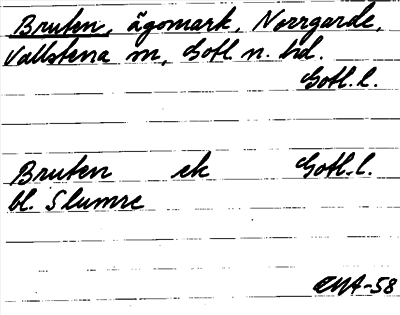 Bruten, ägomark, Norrgarde,
Vallstena sn, Gotl. n. hd.
Gotl. l.
Bruten ek Gotl. l.
bl. Slumre
-58